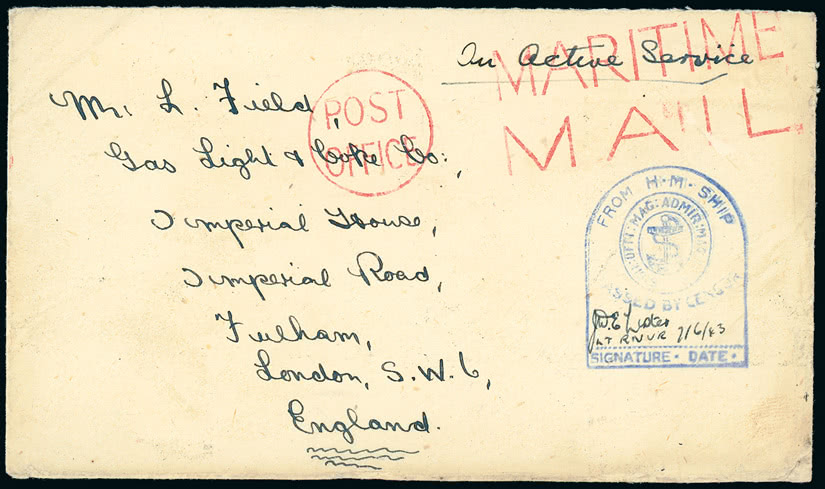 On Active Service
MARITIME
MAIL
POST
OFFICE
Mr. L. Field,
Gas Light & Coke Co:,
Imperial House,
Imperial Road,
Fulham,
London, S.W.6,
England.
FROM H·M·SHIP
MAG: ADMIR: MAG
PASSED BY CENSOR
J.W.E. Lister
LT RNVR 7/6/43
SIGNATURE · DATE ·